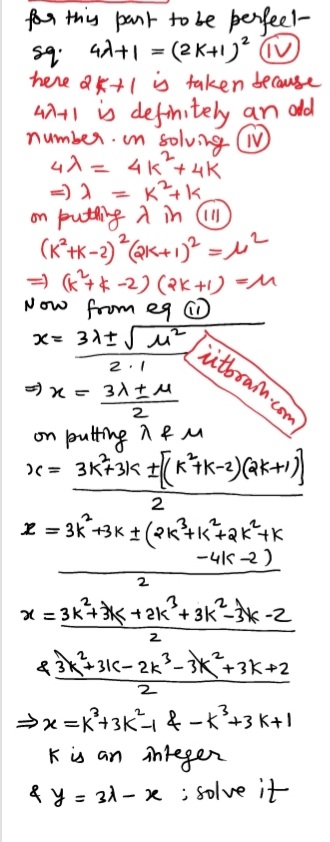 for this part to be perfect-
sq. 4λ+1 = (2K+1)² (IV)
here 2K+1 is taken because
4λ+1 is definitely an odd
number. on solving (IV)
4λ = 4K²+4K
=) λ = K²+K
on putting λ in (III)
(K²+K-2)²(2K+1)² = μ²
⇒ (K²+K-2)(2K+1) = μ
Now from eq (II)
x = 3λ ± √μ² / 2·1
⇒ x = 3λ ± μ / 2
iitbrain.com
on putting λ & μ
x = 3K²+3K ± [(K²+K-2)(2K+1)] / 2
x = 3K²+3K ± (2K³+K²+2K²+K
-4K-2) / 2
x = 3K²+3K+2K³+3K²-3K-2 / 2
& 3K²+3K-2K³-3K²+3K+2 / 2
⇒ x = K³+3K²-1 & -K³+3K+1
K is an integer
& y = 3λ - x ; solve it